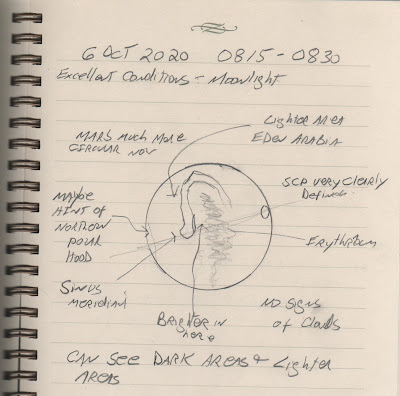 6 OCT 2020 0815-0830
Excellent Conditions - Moonlight
Lighter AREA
EDEN ARABIA
MARS Much More
CIRCULAR NOW
SCP VERY Clearly
Defined
MAYBE
HINT OF
NORTHERN
POLAR
HOOD
Erythraeum
SINUS
MERIDIANI
Brighter IN
here
NO SIGNS
of Clouds
CAN See DARK AREAS + Lighter
AREAS